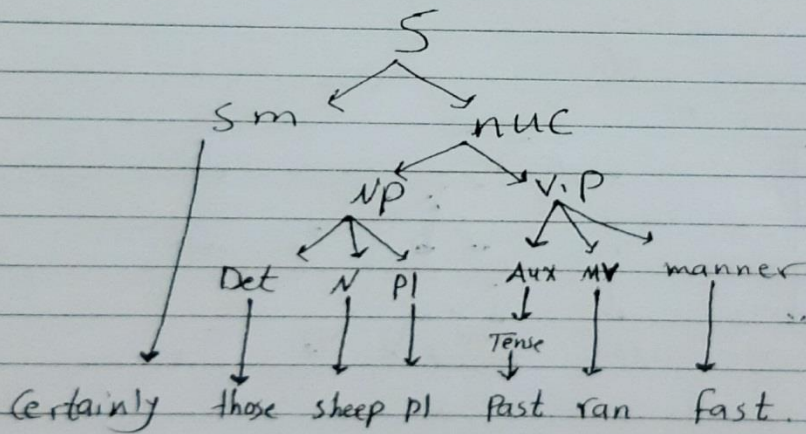 S
Sm nuc
NP V.P
Det N Pl Aux MV manner
Tense
Certainly those sheep pl Past ran fast.